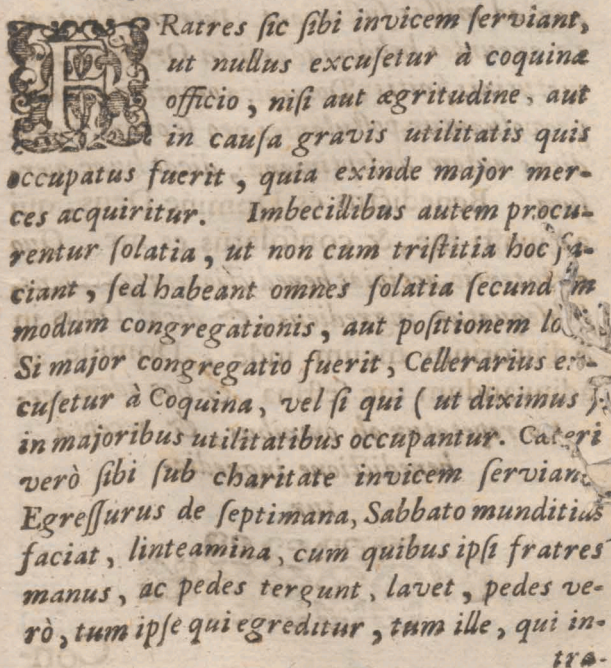 FRatres ſic ſibi invicem ſerviant,
ut nullus excuſetur à coquinæ
officio, niſi aut ægritudine, aut
in cauſa gravis utilitatis quis
occupatus fuerit, quia exinde major mer-
ces acquiritur. Imbecillibus autem procu-
rentur ſolatia, ut non cum triſtitia hoc fa-
ciant, ſed habeant omnes ſolatia
modum congregationis, aut poſitionem
Si major congregatio fuerit, Cellerarius ex-
cuſetur à Coquina, vel ſi qui (ut diximus)
in majoribus utilitatibus occupantur. Cæteri
verò ſibi ſub charitate invicem
Egreſſurus de ſeptimana, Sabbato munditias
faciat, linteamina, cum quibus ipſi fratres
manus, ac pedes tergunt, lavet, pedes ve-
rò, tum ipſe qui egreditur, tum ille, qui in-
tra-